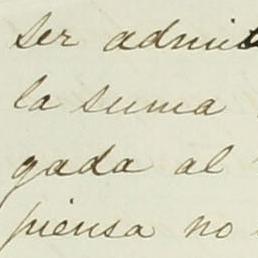 ser admit
la suma
gada al
piensa no